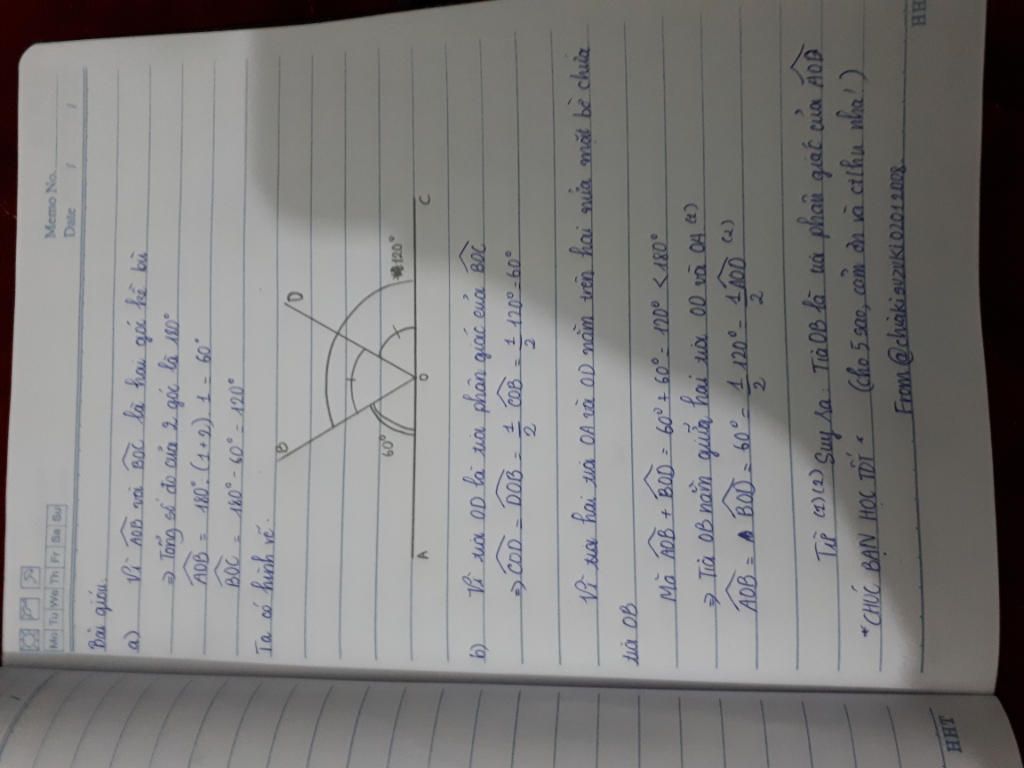 Memo No.
Date / /
Mo Tu We Th Fr Sa Su
Bài giải.
a) Vì AOB và BOC là hai góc kề bù
=> Tổng số đo của 2 góc là 180°
AOB = 180° : (1+2) . 1 = 60°
BOC = 180° - 60° = 120°
Ta có hình vẽ.
B
D
60°
120°
A
O
C
b) Vì tia OD là tia phân giác của BOC
=> COD = DOB = 1/2 COB = 1/2 120° = 60°
Vì tia hai tia OA và OD nằm trên hai nửa mặt bờ chứa
tia OB
Mà AOB + BOD = 60° + 60° = 120° < 180°
=> Tia OB nằm giữa hai tia OD và OA (1)
AOB = BOD = 60° = 1/2 120° = 1/2 AOD (2)
Từ (1) (2) Suy ra: Tia OB là tia phân giác của AOD
*CHÚC BẠN HỌC TỐT* (cho 5 sao, cảm ơn và ctlhn nha!)
HHT
HHT